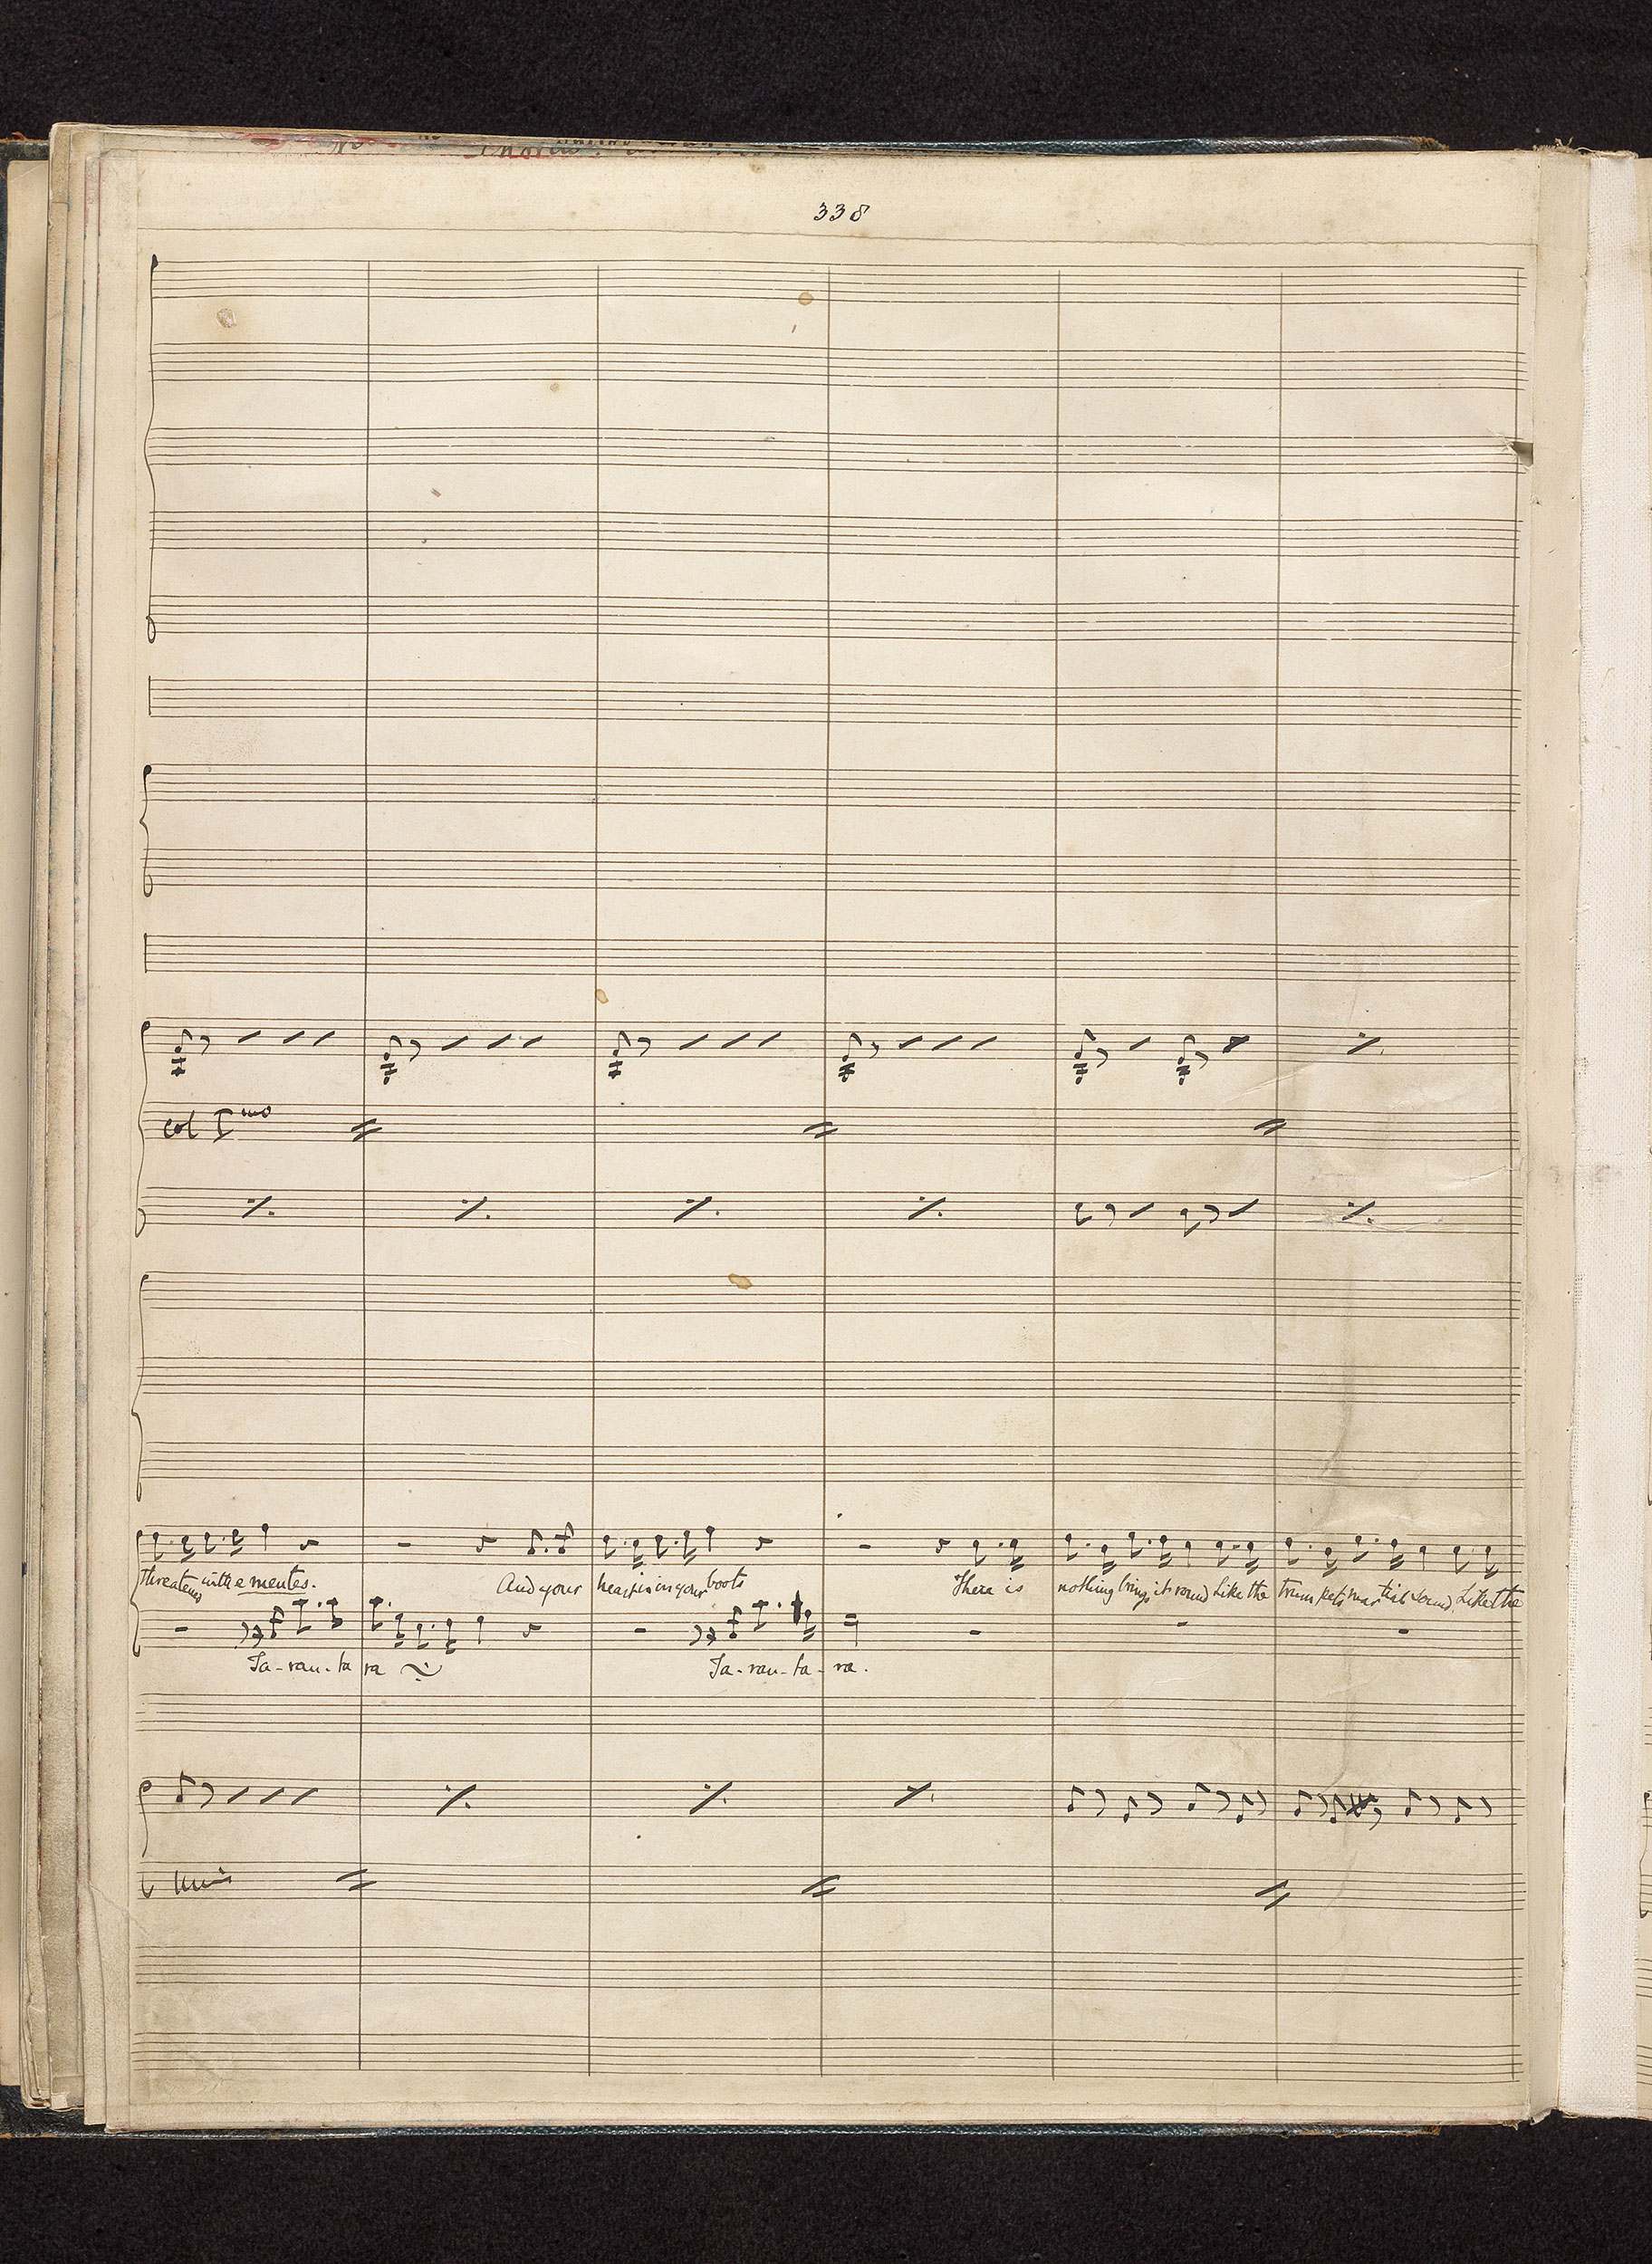 338
col Imo
threatens with emeutes. And your heart is in your boots There is nothing brings it round Like the trumpets martial sound Like the
Ta-ran-ta ra Ta-ran-ta-ra.